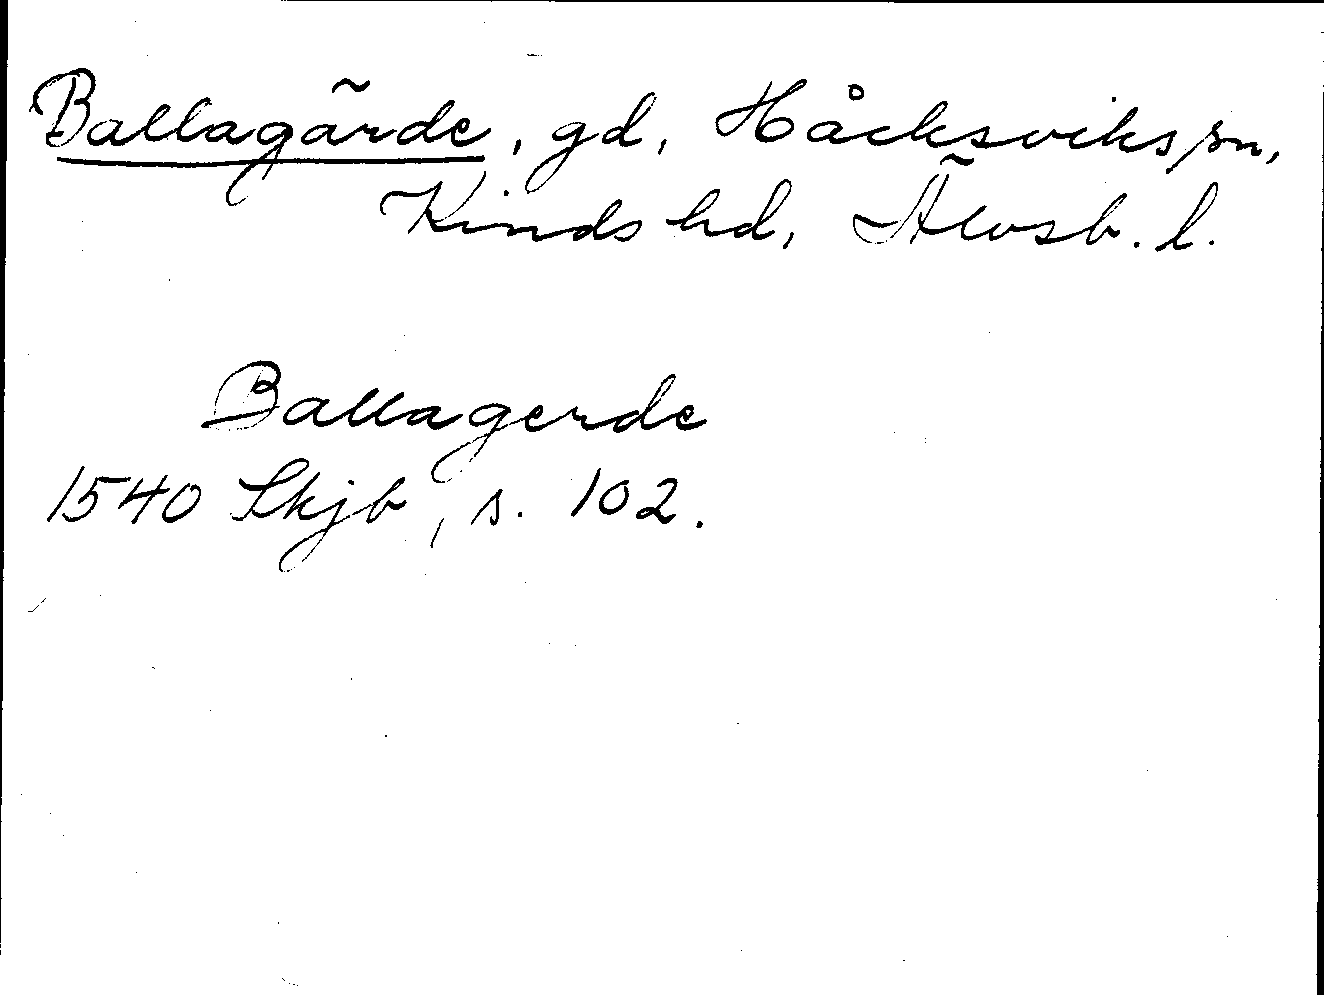 Ballagärde, gd, Håcksviks sn,
Kinds hd, Älvsb. l.
Ballagerde
1540 Skjb, s. 102.